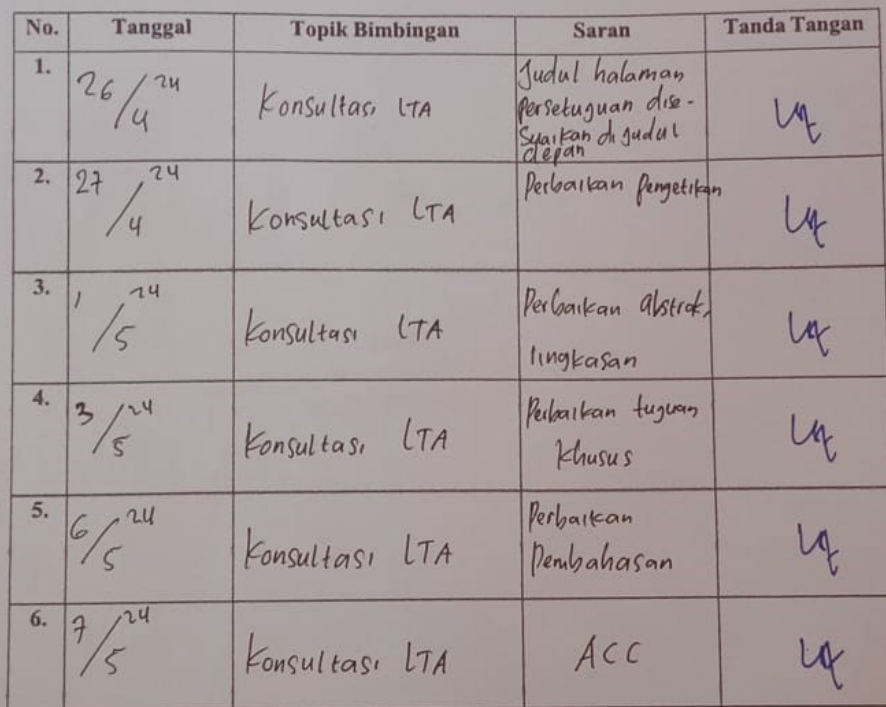 No. Tanggal Topik Bimbingan Saran Tanda Tangan
1. 26/4 24 Konsultasi LTA Judul halaman
Persetuguan dise-
suaikan di judul
depan
2. 27/4 24 Konsultasi LTA Perbaikan Pengetikan
3. 1/5 24 Konsultasi LTA Perbaikan abstrak,
lingkasan
4. 3/5 24 Konsultasi LTA Perbaikan tuguan
Khusus
5. 6/5 24 Konsultasi LTA Perbaikan
Pembahasan
6. 7/5 24 Konsultasi LTA ACC